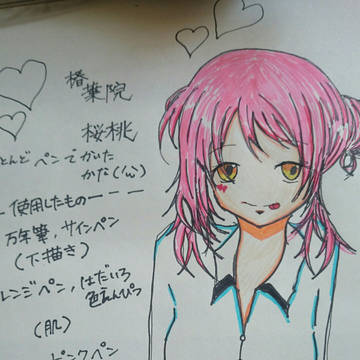 椿葉院
桜桃
とんどペンでかいた
かな(/ω)
使用したもの
万年筆、サインペン
(下描き)
レンジペン、はだいろ
色えんぴつ
(肌)
ピンクペン